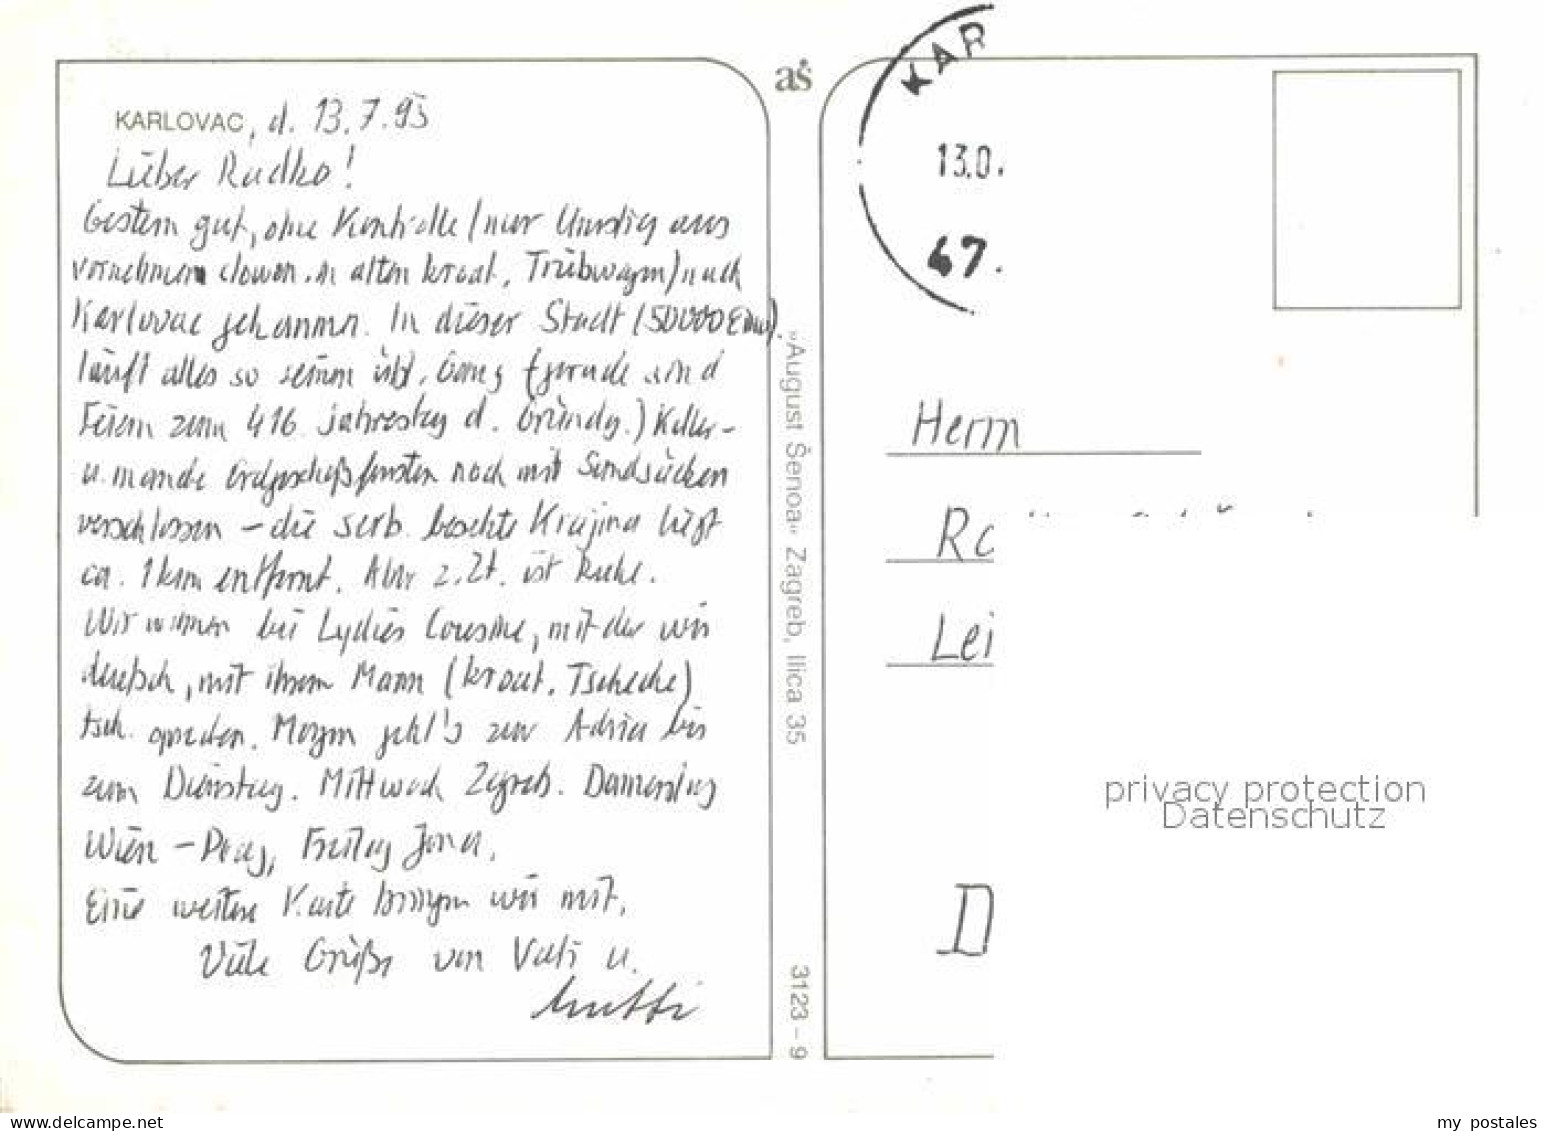 KARLOVAC, d. 13.7.95
Lieber Radko!
Gestern gut, ohne Kontrolle (nur Umstieg aus
vornehmen in alten kroat. Triebwagen) nach
Karlovac gekommen. In dieser Stadt (50000 Einw.)
läuft alles so seinen übl. Gang (gerade sind
Feiern zum 416. Jahrestag d. Gründg.) Keller-
u. manche Erdgeschoßfenster noch mit Sandsäcken
verschlossen – die serb. besetzte Krajina liegt
ca. 1km entfernt. Aber z.Zt. ist Ruhe.
Wir wohnen bei Lydies Cousine, mit der wir
deutsch, mit ihrem Mann (kroat. Tscheche)
tsch. sprechen. Morgen geht's zur Adria bis
zum Dienstag. Mittwoch Zagreb. Donnerstag
Wien – Prag, Freitag Jena.
Eine weitere Karte bringen wir mit.
Viele Grüße von Vati u.
Mutti
aš
»August Šenoa« Zagreb, Ilica 35
3123 – 9
KAR
13.0.
47.
Herrn
Lei
D
privacy protection
Datenschutz
www.delcampe.net
my postales